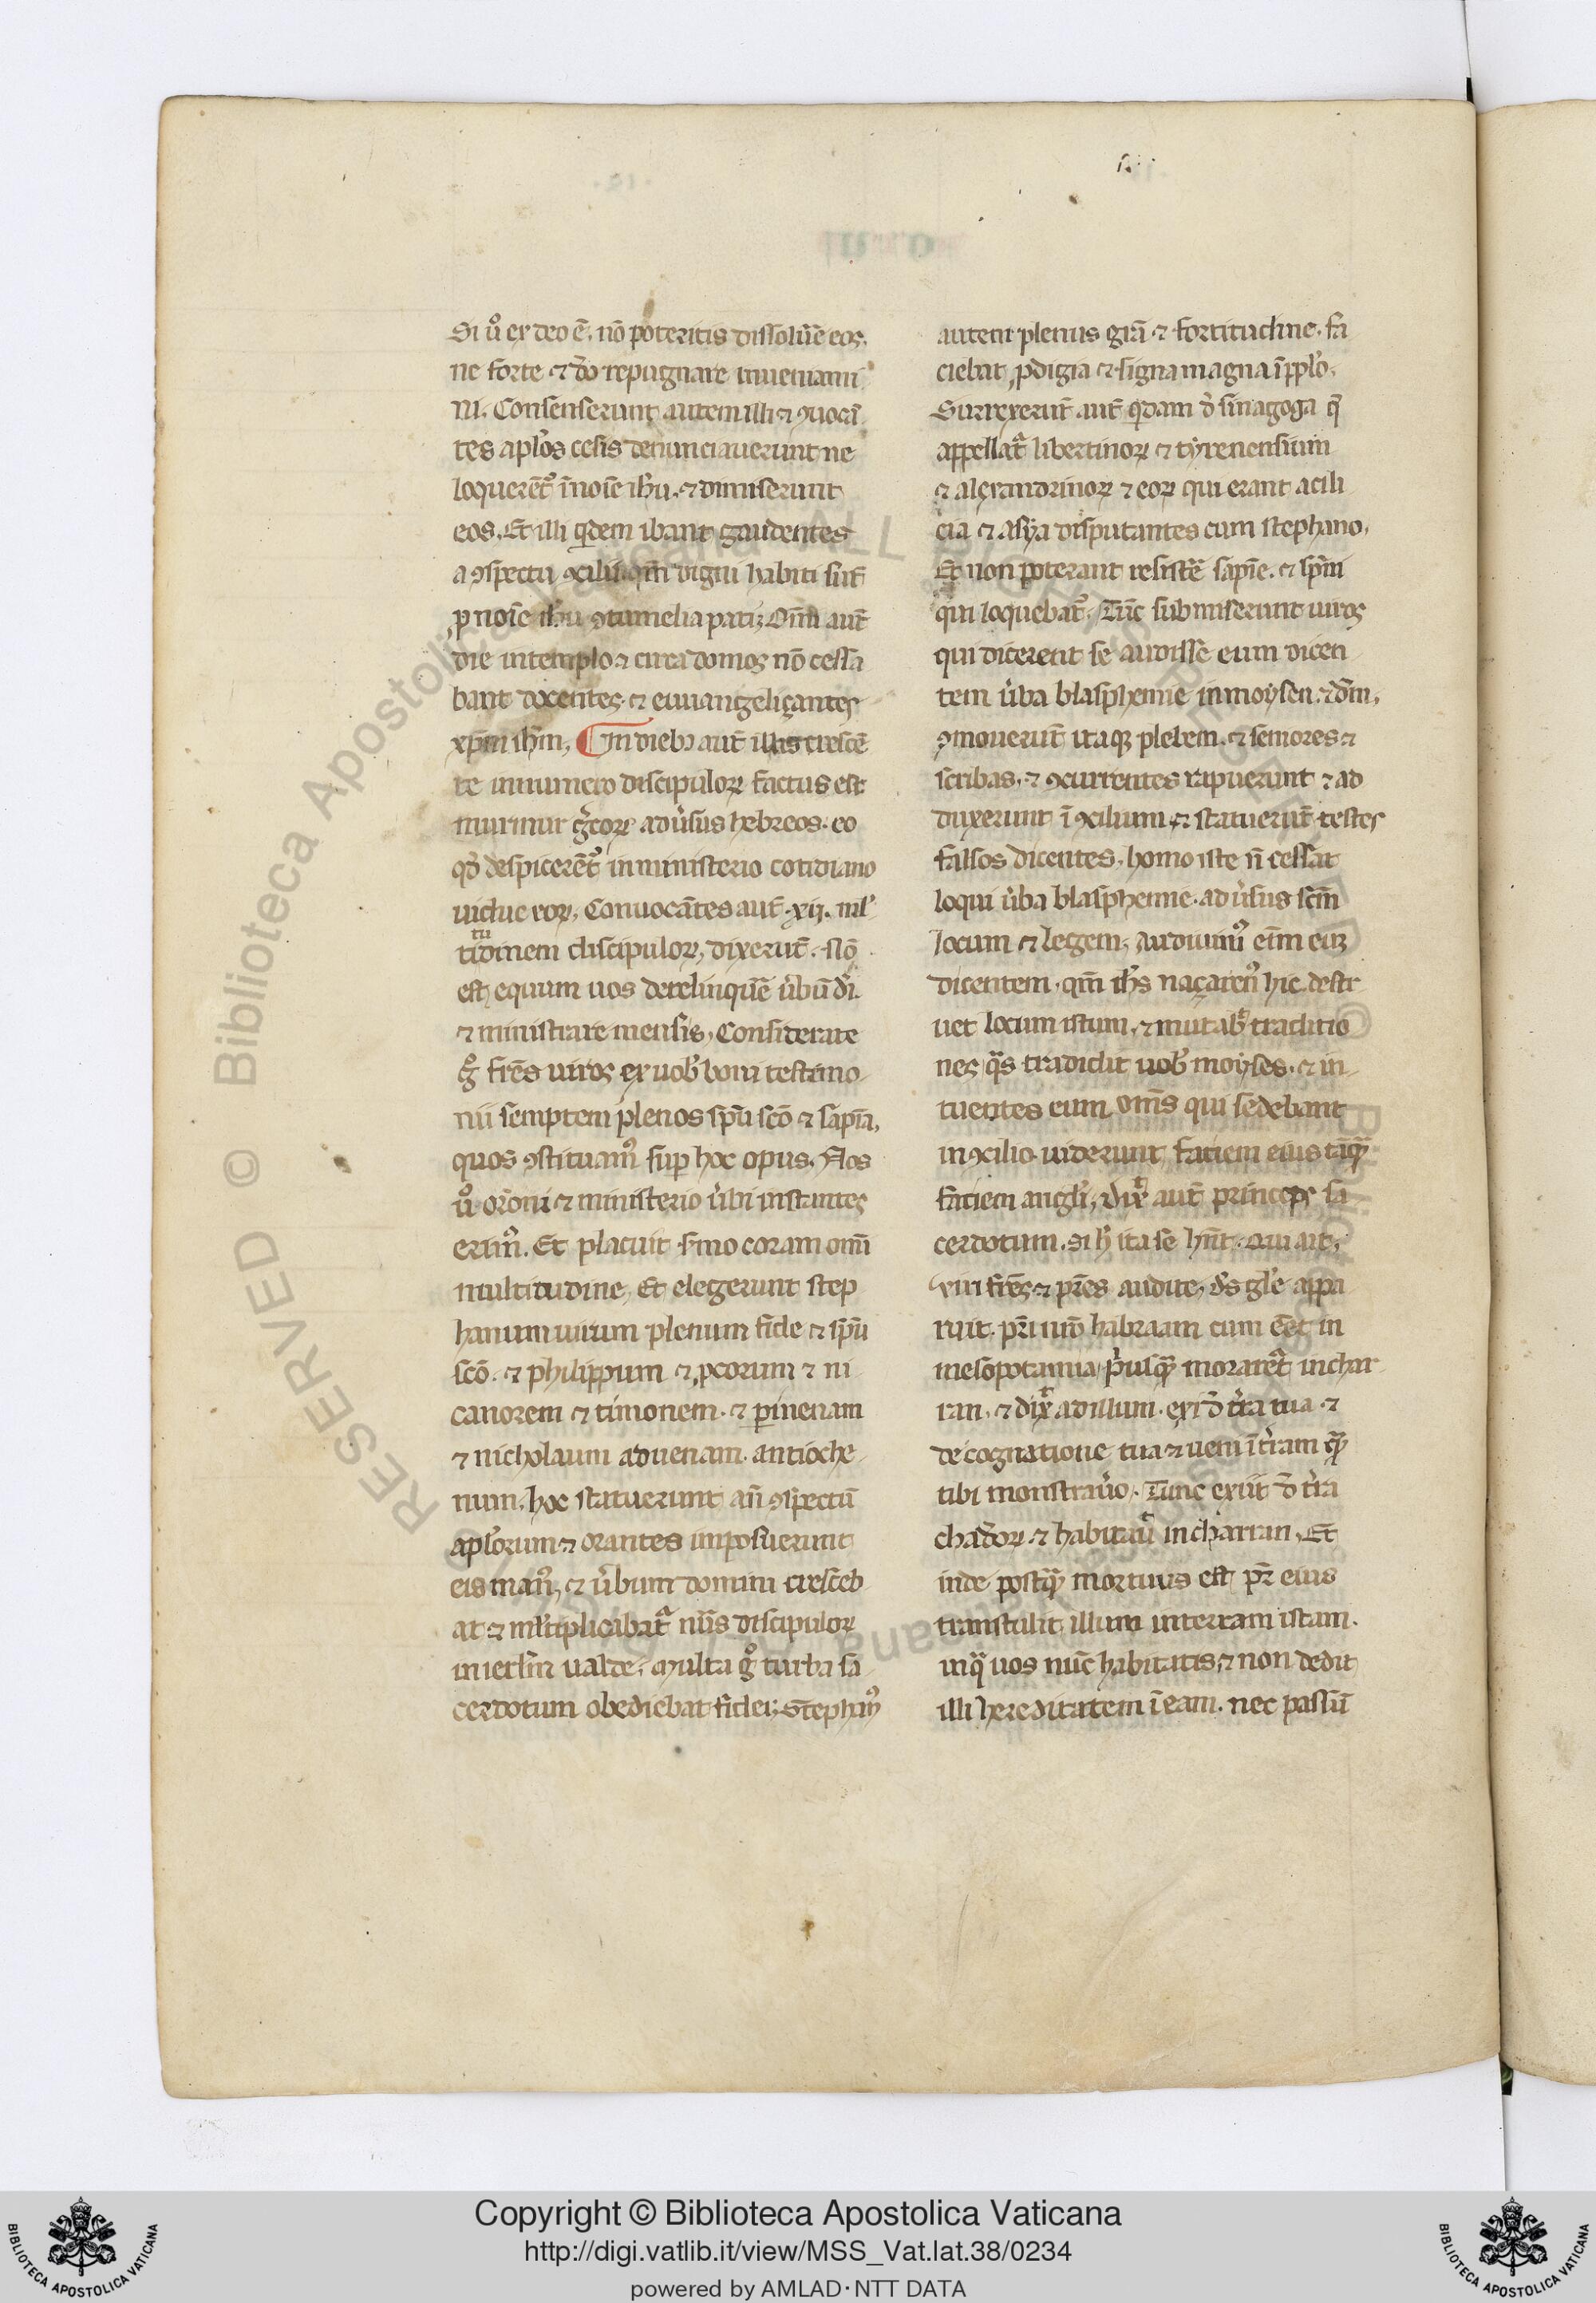 Si ů ex deo ē. nō poteritis dissoluẽ eos.
ne forte ⁊ dō repugnare inueniami
ni. Consenserunt autem illi ⁊ ꝯuocā
tes apłos cesis denunciauerunt ne
loquerẽt᷑ ī noīe ihū. ⁊ dimiserunt
eos. Et illi qͥdem ibant gaudentes
a ꝯspectu ꝯcilii. qm̄ digni habiti sūt
ꝓ noīe ihū ꝯtumelia pati; Om̄i aut̄
die in templo ⁊ circa domos nō cessa
bant docentes. ⁊ euuangeliçantes
xp̄m ihm̄, In dieb⁊ aut̄ illis crescē
te in numero discipuloꝝ factus est
murmur g̃coꝝ adūsus hebreos. eo
qđ despicerēt᷑ in ministerio cotidiano
uidue eoꝝ, Conuocātes aut̄ .xij. ml᷑
titudinem discipuloꝝ, dixerūt. Nō
est equum uos derelinquẽ ūbū dī.
⁊ ministrare mensis, Considerate
gͦ fr̄es uiros ex uob᷑ boni testimo
nii semptem plenos sp̄u scō ⁊ sapīa,
quos ꝯstituam᷒ suꝑ hoc opus. Nos
ůo orōni ⁊ ministerio ūbi instantes
erim᷒. Et placuit s̃mo coram om̄i
multitudine, Et elegerunt step
hanum uirum plenum fide ⁊ sp̄u
scō. ⁊ philippum ⁊ ꝓcorum ⁊ ni
canorem ⁊ timonem. ⁊ ꝑmenam
⁊ nicholaum aduenam. antioche
num. hoc statuerunt an̄ ꝯspectū
apłorum ⁊ orantes imposuerunt
eis man᷒, ⁊ ūbum domini cresceb
at ⁊ ml̄tiplicabat᷑ nūs discipuloꝝ
in ierłm ualde. Multa gͦ turba sa
cerdotum obediebat fidei; Stephan᷒
autem plenus grā ⁊ fortitudine. fa
ciebat ꝓdigia ⁊ signa magna ī ppło.
Surrexerūt aut̄ qͥdam đ sinagoga q̄
appellat᷑ libertinoꝝ ⁊ tyrenensium
⁊ alexandrinoꝝ ⁊ eoꝝ qui erant a cili
cia ⁊ asya disputantes cum stephano.
Et non poterant resistẽ sapīe. ⁊ sp̄ui
qui loquebat᷑. Tūc submiserunt uiros
qui dicerent se audisse eum dicen
tem ūba blasphemie in moysen. ⁊ dm̄.
ꝯmouerūt itaqꝫ plebem. ⁊ seniores ⁊
scribas. ⁊ ꝯcurrentes rapuerunt ⁊ ad
duxerunt ī ꝯcilium ⁊ statuerūt testes
falsos dicentes. homo iste n̄ cessat
loqui ūba blasphemie. adūsus scm̄
locum ⁊ legem. Audiuim᷒ eīm euꝫ
dicentem. qm̄ ihs̄ naçaren᷒ hic destr
uet locum istum. ⁊ mutab᷑ traditio
nes qͣs tradidit uob᷑ moyses. ⁊ in
tuentes eum om̄s qui sedebant
in ꝯcilio uiderunt faciem eius tāqͣꝫ
faciem angłi, dix᷑ aut̄ princeps sa
cerdotum. Si h̄ ita se hn̄t. Qui ait,
viri fr̄es ⁊ pr̄es audite, ds̄ głe appa
ruit. pr̄i nr̄o habraam cum eēt in
mesopotamia pͥusqͣꝫ moraret᷑ in char
ran. ⁊ dix᷑ ad illum. exi đ tr̄a tua. ⁊
de cognatione tua ⁊ ueni ī tr̄am qͣꝫ
tibi monstraūo. Tunc exiit đ tr̄a
chadeoꝝ. ⁊ habitau᷑ in charran, Et
inde postqͣꝫ mortuus est pr̄ eius
transtulit illum in terram istam.
in qͣ uos nūc habitatis, ⁊ non dedit
illi hereditatem ī eam. nec passū
Copyright © Biblioteca Apostolica Vaticana
http://digi.vatlib.it/view/MSS_Vat.lat.38/0234
powered by AMLAD·NTT DATA